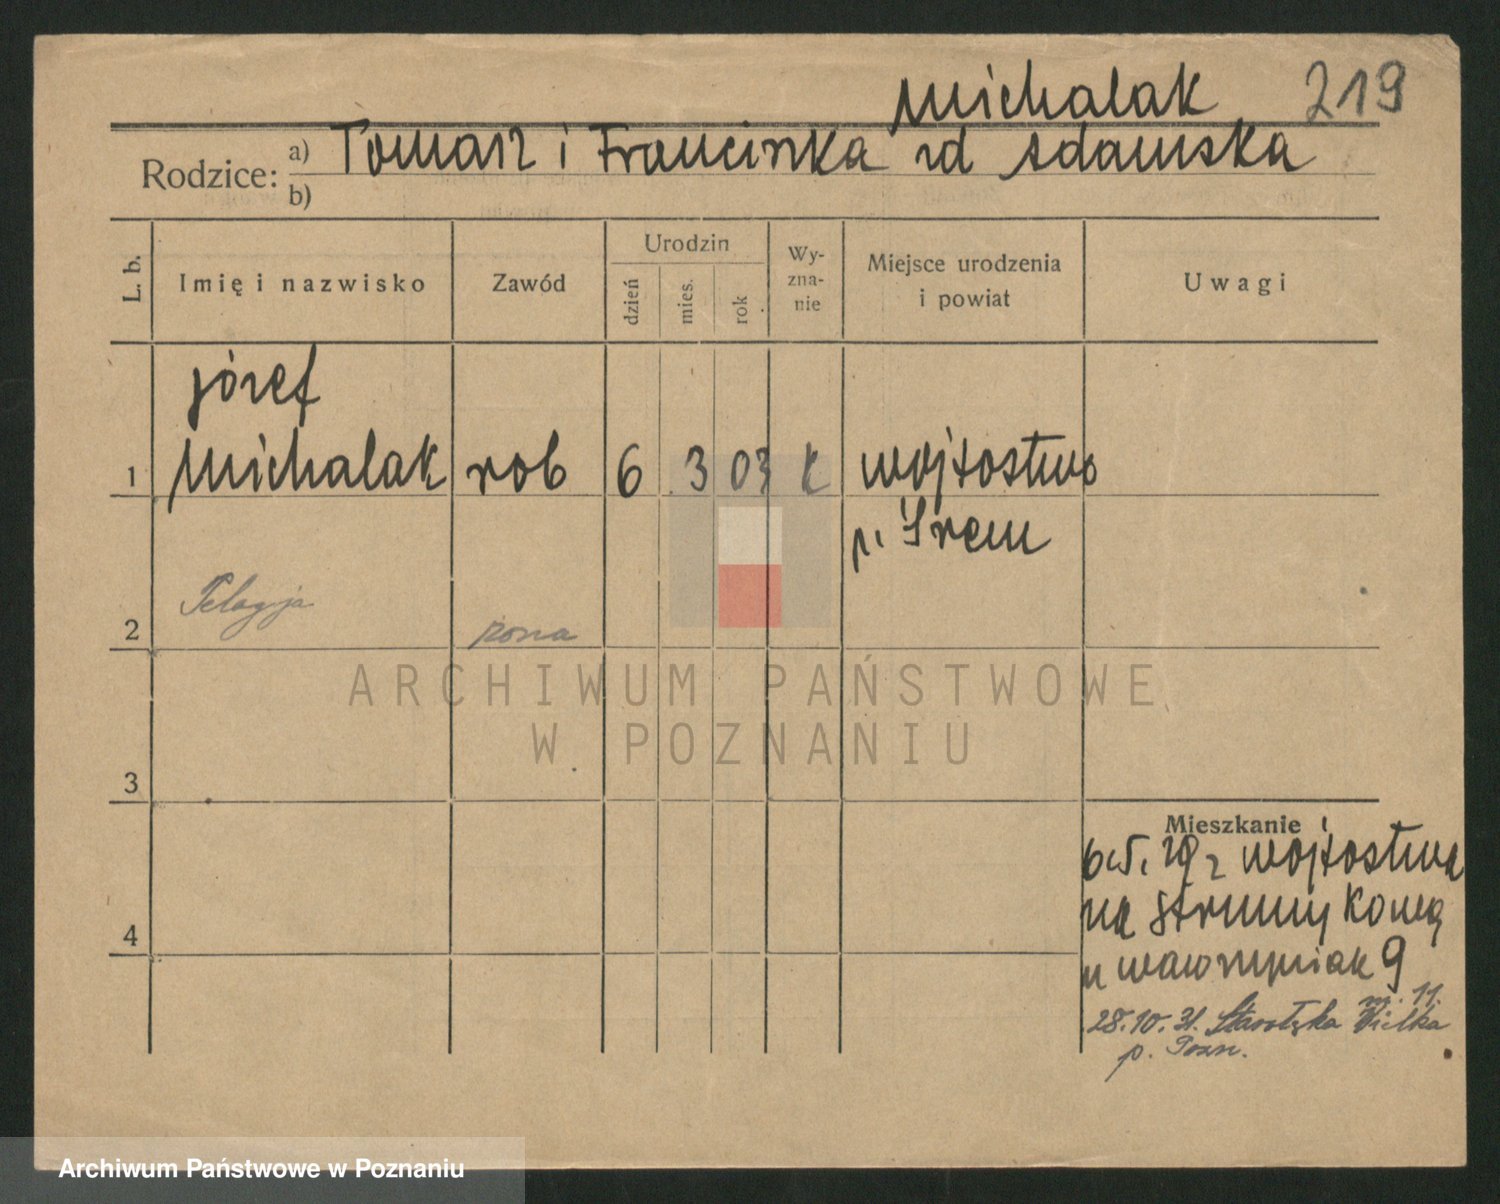 Michalak 219
Rodzice: a) Tomasz i Franciszka zd Adamska
b)
L. b. Imię i nazwisko Zawód Urodzin dzień mies. rok Wy-zna-nie Miejsce urodzenia i powiat Uwagi
Józef
1 Michalak rob 6 3 03 k Wojtostwo
p. Śrem
Pelagja
2 żona
ARCHIWUM PAŃSTWOWE
W POZNANIU
3
Mieszkanie
6.5. 29 z Wojtostwa
na
4
u Wawrzyniak 9
m. 11.
28.10.31. Starołęka Wielka
p. Pozn.
Archiwum Państwowe w Poznaniu